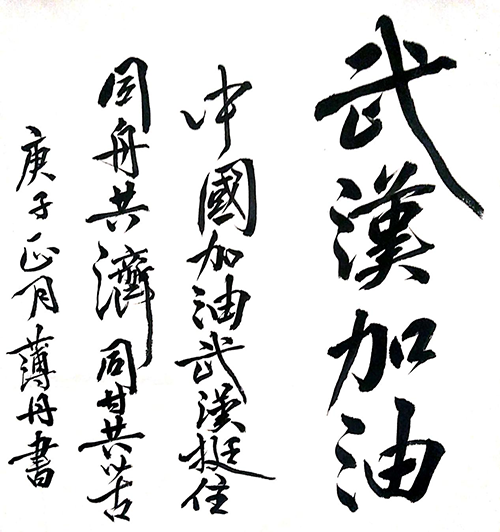 武漢加油
中國加油武漢挺住
同舟共濟同甘共苦
庚子正月薄丹書